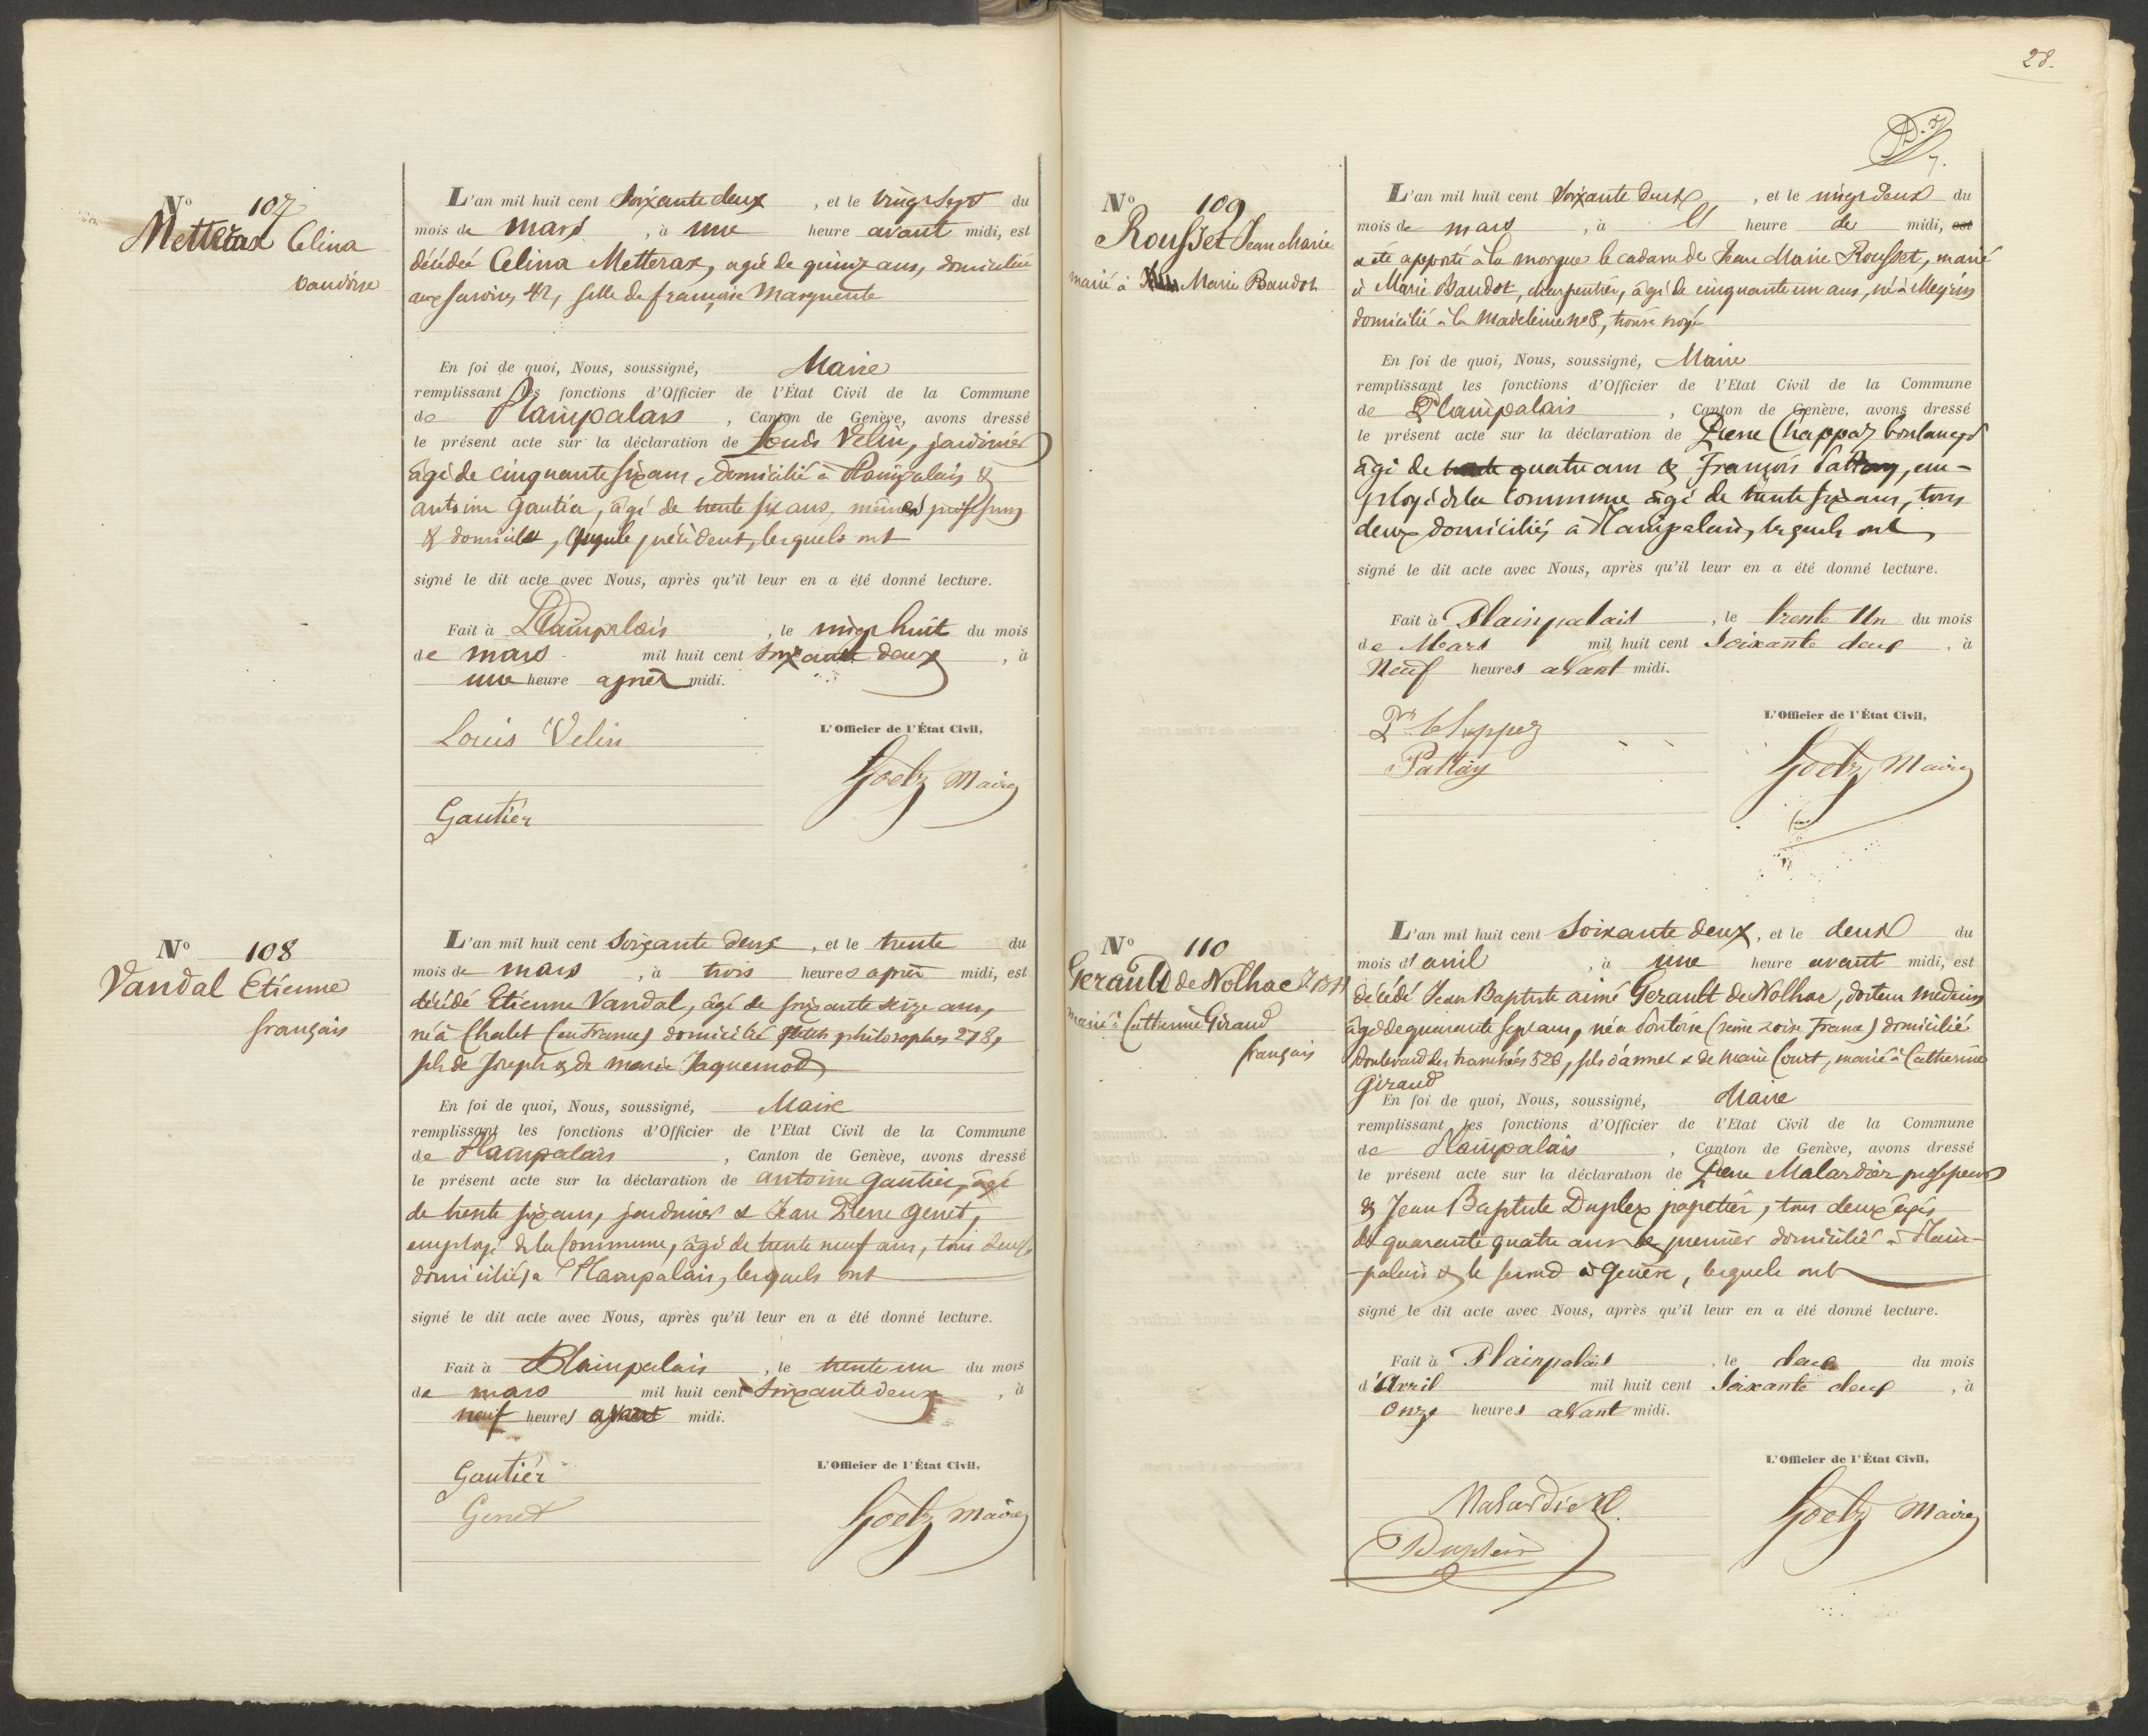 N° 107
Metterax Celina
vaudoise
L'an mil huit cent soixante deux, et le vingt sept du
mois de mars, à une heure avant midi, est
décédée Celina Metterax, agée de quinze ans, domiciliée
aux Savoises 42, fille de françoise Marguerite
En foi de quoi, Nous, soussigné, Maire
remplissant les fonctions d'Officier de l'État Civil de la Commune
de Plainpalais, Canton de Genève, avons dressé
le présent acte sur la déclaration de Louis Velin, jardinier
âgé de cinquante six ans, domicilié à Plainpalais &
antoine Gautier, âgé de trente six ans, mêmes profession
& domicile, que le précédent, lesquels ont
signé le dit acte avec Nous, après qu'il leur en a été donné lecture.
Fait à Plainpalais, le vingt huit du mois
de mars mil huit cent soixante deux, à
une heure après midi.
Louis Velin
L'Officier de l'État Civil,
Goetz Maire
Gautier
N° 108
Vandal Etienne
français
L'an mil huit cent Soixante deux, et le trente du
mois de mars, à trois heures après midi, est
décédé Etienne Vandal, âgé de soixante seize ans,
né à Chalet (en France) domicilié petits philosophes 278,
fils de Joseph & de marie Jaquemod
En foi de quoi, Nous, soussigné, Maire
remplissant les fonctions d'Officier de l'Etat Civil de la Commune
de Plainpalais, Canton de Genève, avons dressé
le présent acte sur la déclaration de antoine Gautier, âgé
de trente six ans, jardinier & Jean Pierre Genet,
employé de la Commune, âgé de trente neuf ans, tous deux
domiciliés a Plainpalais, lesquels ont
signé le dit acte avec Nous, après qu'il leur en a été donné lecture.
Fait à Plainpalais, le trente un du mois
de mars mil huit cent Soixante deux, à
neuf heures avant midi.
Gautier
L'Officier de l'État Civil,
Genet
Goetz Maire
28.
N° 109
Rousset Jean Marie
marié à Marie Baudot
L'an mil huit cent soixante deux, et le vingt deux du
mois de mars, à 11 heure de midi, est
a été apporté à la morgue le cadavre de Jean Marie Rousset, marié
à Marie Baudot, charpentier, âgé de cinquante un ans, né à Meyrin
domicilié à la Madeleine no 8, trouvé noyé
En foi de quoi, Nous, soussigné, Maire
remplissant les fonctions d'Officier de l'Etat Civil de la Commune
de Plainpalais, Canton de Genève, avons dressé
le présent acte sur la déclaration de Pierre Chappaz boulanger
âgé de quatre ans & François Pattay, em-
ployé de la Commune âgé de trente six ans, tous
deux domiciliés à Plainpalais, lesquels ont
signé le dit acte avec Nous, après qu'il leur en a été donné lecture.
Fait à Plainpalais, le trente Un du mois
de Mars mil huit cent Soixante deux, à
Neuf heures avant midi.
Pre Chappaz
L'Officier de l'État Civil,
Pattay
Goetz Maire
N° 110
Gerault de Nolhac J B A
marié à Catherine Giraud
français
L'an mil huit cent Soixante deux, et le deux du
mois d'avril, à une heure avant midi, est
décédé Jean Baptiste aimé Gerault de Nolhac, docteur medecin
âgé de quarante sept ans, né a Pontoise (seine & oise France) domicilié
boulevard des tranchées 526, fils d'armet & de Marie Court, marié à Catherine
Giraud
En foi de quoi, Nous, soussigné, Maire
remplissant les fonctions d'Officier de l'Etat Civil de la Commune
de Plainpalais, Canton de Genève, avons dressé
le présent acte sur la déclaration de Pierre Malardier professeur
& Jean Baptiste Duplex papetier, tous deux âgés
de quarante quatre ans le premier domicilié à Plain-
palais & le second à Genève, lesquels ont
signé le dit acte avec Nous, après qu'il leur en a été donné lecture.
Fait à Plainpalais, le deux du mois
d'Avril mil huit cent Soixante deux, à
Onze heures avant midi.
L'Officier de l'État Civil,
Malardier
Goetz Maire